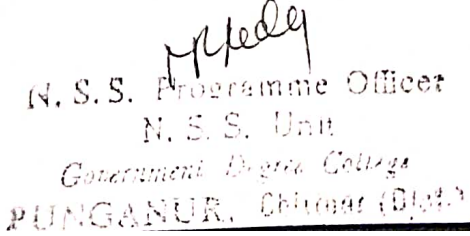 N. S. S. Programme Officer
N. S. S. Unit
Government Degree College
PUNGANUR, Chittoor (Dist.)